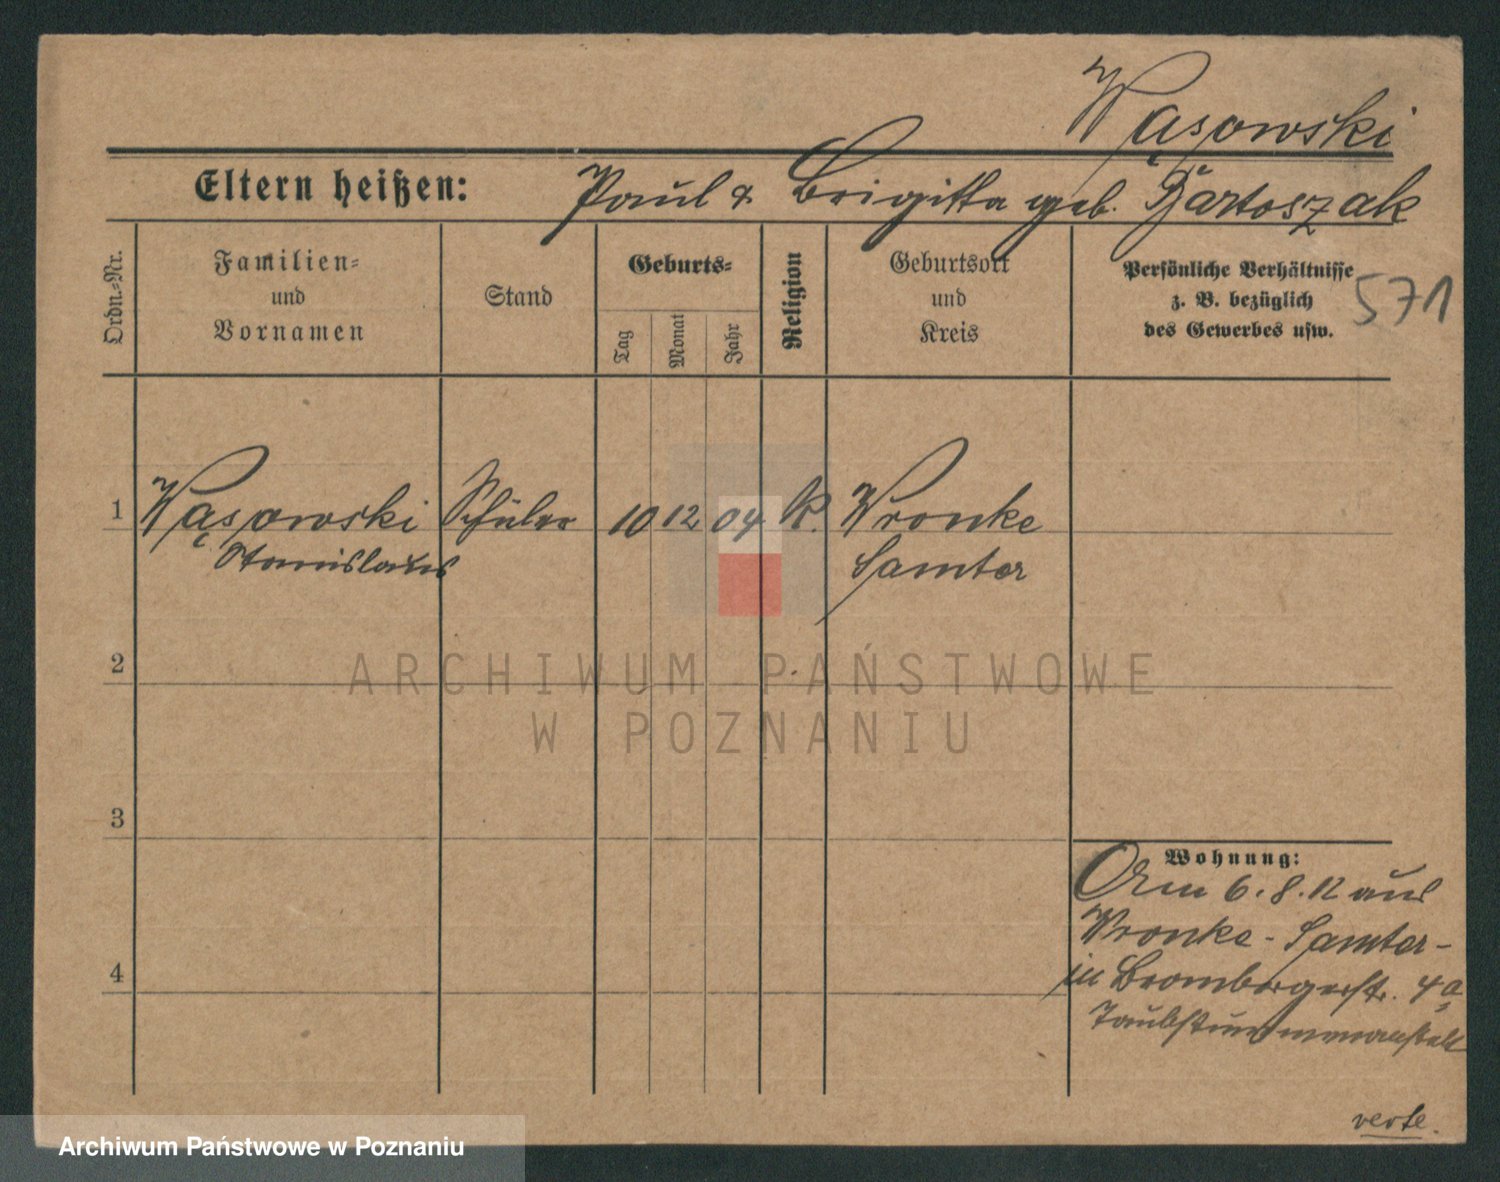 Wąsowski
Eltern heißen: Paul & Brigitta geb. Bartoszak
Ordn.-Nr.
Familien-
und
Vornamen
Stand
Geburts-
Tag
Monat
Jahr
Religion
Geburtsort
und
Kreis
Persönliche Verhältnisse
z. B. bezüglich
des Gewerbes usw.
571
1 Wąsowski Schüler 10 12 04 K. Wronke
Stanislaus Samter
2
ARCHIWUM PAŃSTWOWE
W POZNANIU
3
Wohnung:
Am 6.8.12 aus
Wronke - Samter -
4
in Brombergerstr. 4a
Taubstummenanstalt
verte.
Archiwum Państwowe w Poznaniu